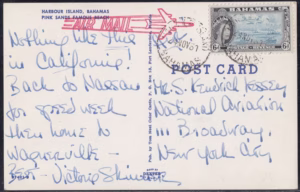 HARBOUR ISLAND, BAHAMAS
PINK SANDS FAMOUS BEACH
AIR MAIL
BAHAMAS
Nothing like this
in California!
Back to Nassau
for speed week
then home to
-
Best - Victoria
POST CARD
Mr. S. Kendrick
National Aviation
111 Broadway,
New York City